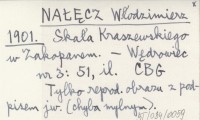 NAŁĘCZ Włodzimierz
1901. Skała Kraszewskiego
w Zakopanem. – Wędrowiec
nr 3: 51, il. CBG
Tylko reprod. obrazu z pod-
pisem jw. (chyba mylnym).